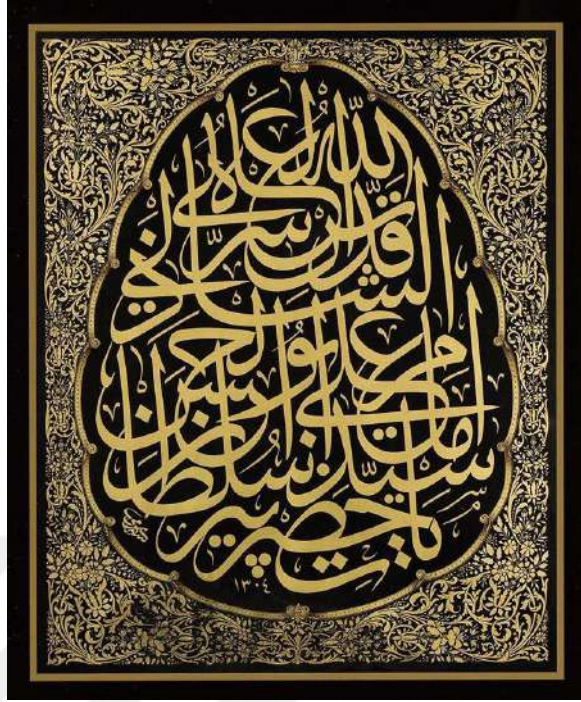 يا حضرت پير سلطان
سيدنا امامنا علي ابو الحسن
الشاذلي
قدس الله سره الاعلى
١٣٠٤